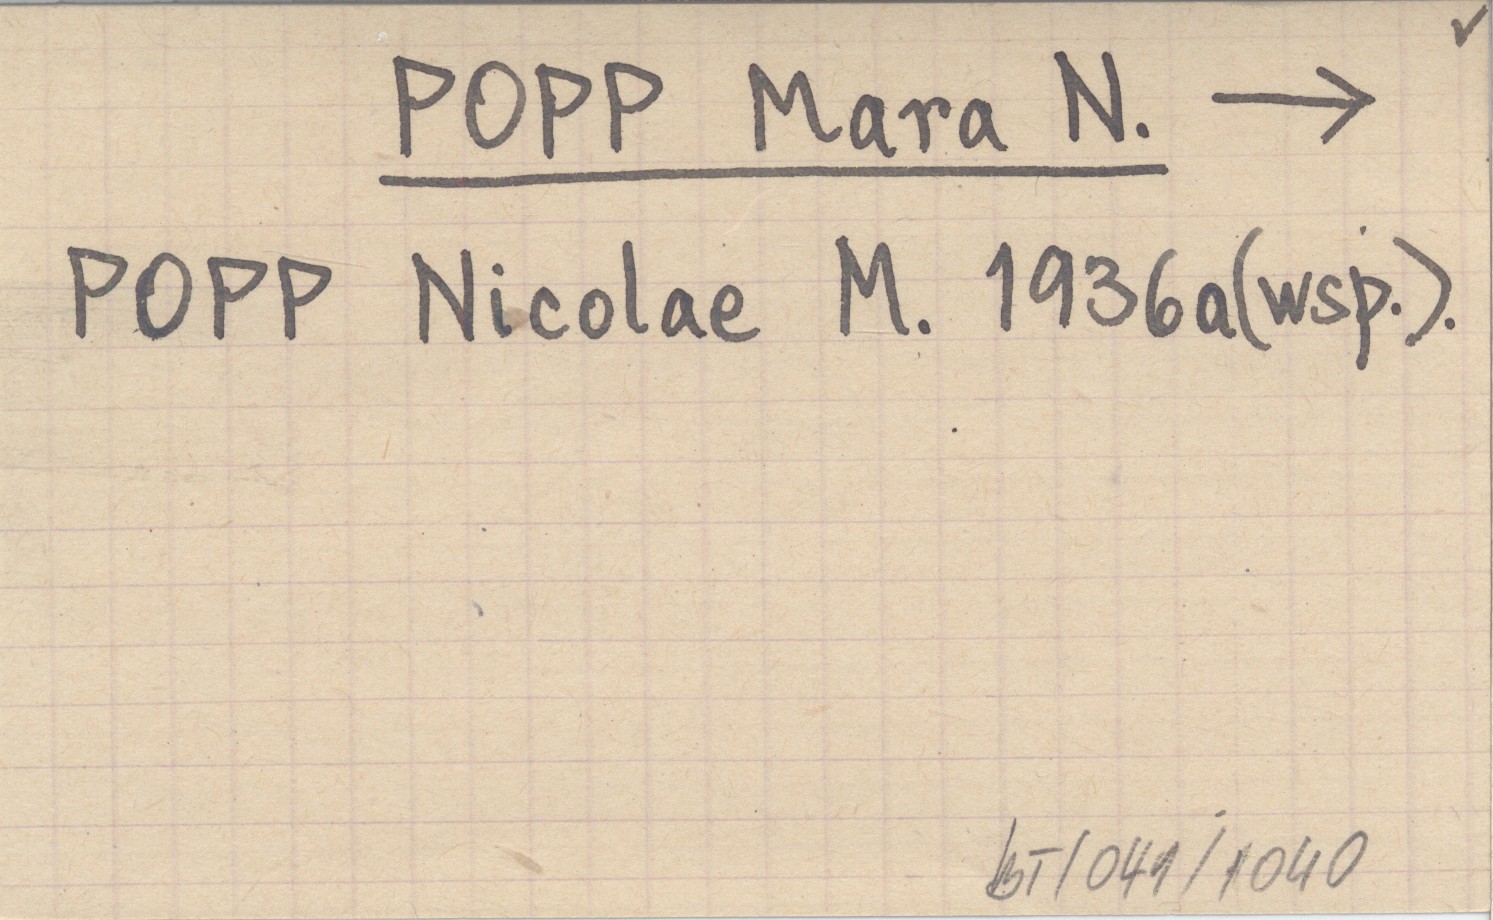 ✓
POPP Mara N. →
POPP Nicolae M. 1936a (wsp.).
BT/041/1040